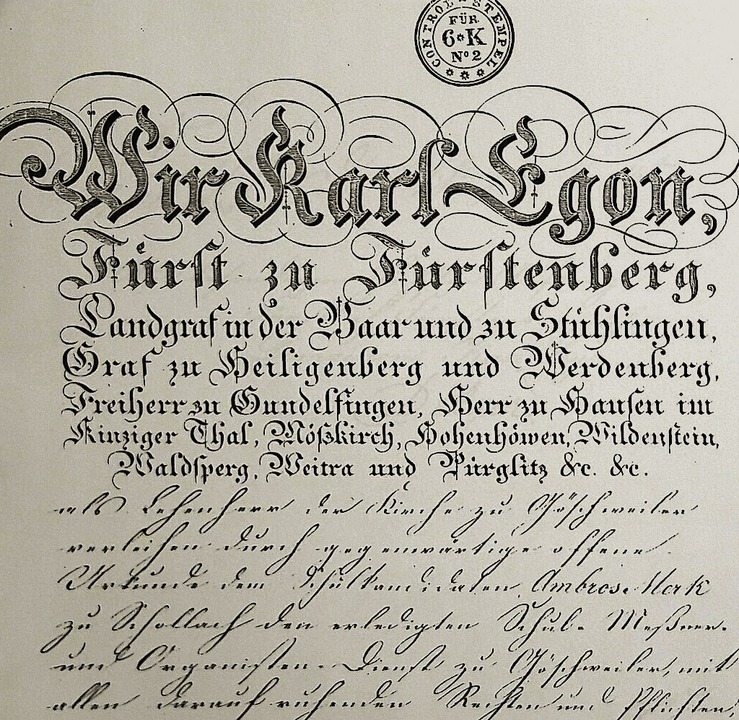 CONTROL STEMPEL
FÜR
6*K
Nº 2
Wir Karl Egon,
Fürst zu Fürstenberg,
Landgraf in der Baar und zu Stühlingen,
Graf zu Heiligenberg und Werdenberg,
Freiherr zu Gundelfingen, Herr zu Hausen im
Kinziger Thal, Mößkirch, Hohenhöwen, Wildenstein,
Waldsperg, Weitra und Pürglitz &c. &c.
als Lehenherr der Kirche zu Göschweiler
verleihen durch gegenwärtige offene
Urkunde dem Schulkandidaten Ambros Merk
zu Schollach den erledigten Schul- Meßner-
und Organisten-Dienst zu Göschweiler, mit
allen darauf ruhenden Rechten und Pflichten,